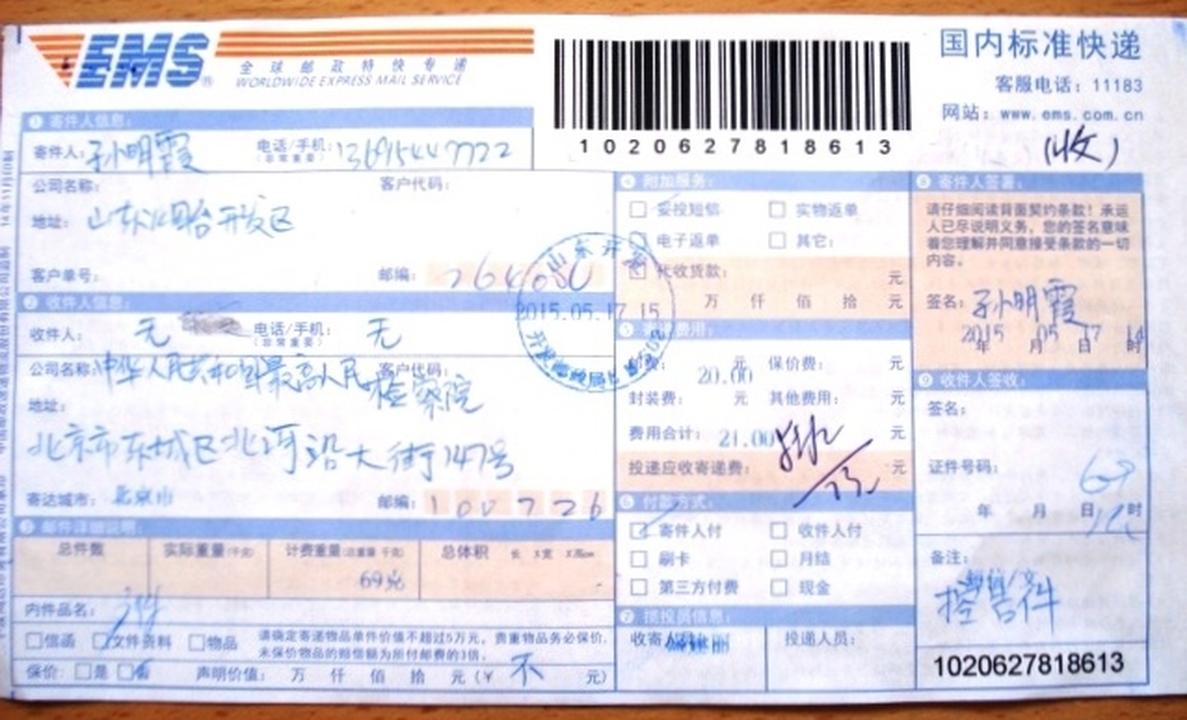 EMS
全球邮政特快专递
WORLDWIDE EXPRESS MAIL SERVICE
1020627818613
国内标准快递
客服电话：11183
网站：www.ems.com.cn
(收)
① 寄件人信息：
寄件人：孙明霞 电话/手机：(非常重要) 13695447722
公司名称： 客户代码：
地址：山东烟台开发区
客户单号： 邮编：264000
② 收件人信息：
收件人：无 电话/手机：(非常重要) 无
公司名称：中华人民共和国最高人民检察院 客户代码：
地址：
北京市东城区北河沿大街147号
寄达城市：北京市 邮编：100726
③ 邮件详细说明：
总件数 实际重量(千克) 计费重量(总重量 千克) 总体积 长 X宽 X高cm
69克
内件品名：
信函 文件资料 物品 请确定寄递物品单件价值不超过5万元，贵重物品务必保价，
未保价物品的赔偿额为所付邮费的3倍。
保价：是 否 声明价值： 万 仟 佰 拾 元(￥ 不 元)
④ 附加服务：
妥投短信 实物返单
电子返单 其它：
代收货款： 元
万 仟 佰 拾 元
山东开发
2015.05.17 15
费用：
邮费：20.00 元 保价费： 元
封装费： 元 其他费用： 元
费用合计：21.00 元
投递应收寄递费： 元
⑥ 付款方式：
寄件人付 收件人付
刷卡 月结
第三方付费 现金
⑦ 揽投员信息：
收寄人员： 投递人员：
⑧ 寄件人签署：
请仔细阅读背面契约条款！承运
人已尽说明义务，您的签名意味
着您理解并同意接受条款的一切
内容。
签名：孙明霞
2015年 05月 17日 14时
⑨ 收件人签收：
签名：
证件号码：
年 月 日 时
备注：
控告件
1020627818613